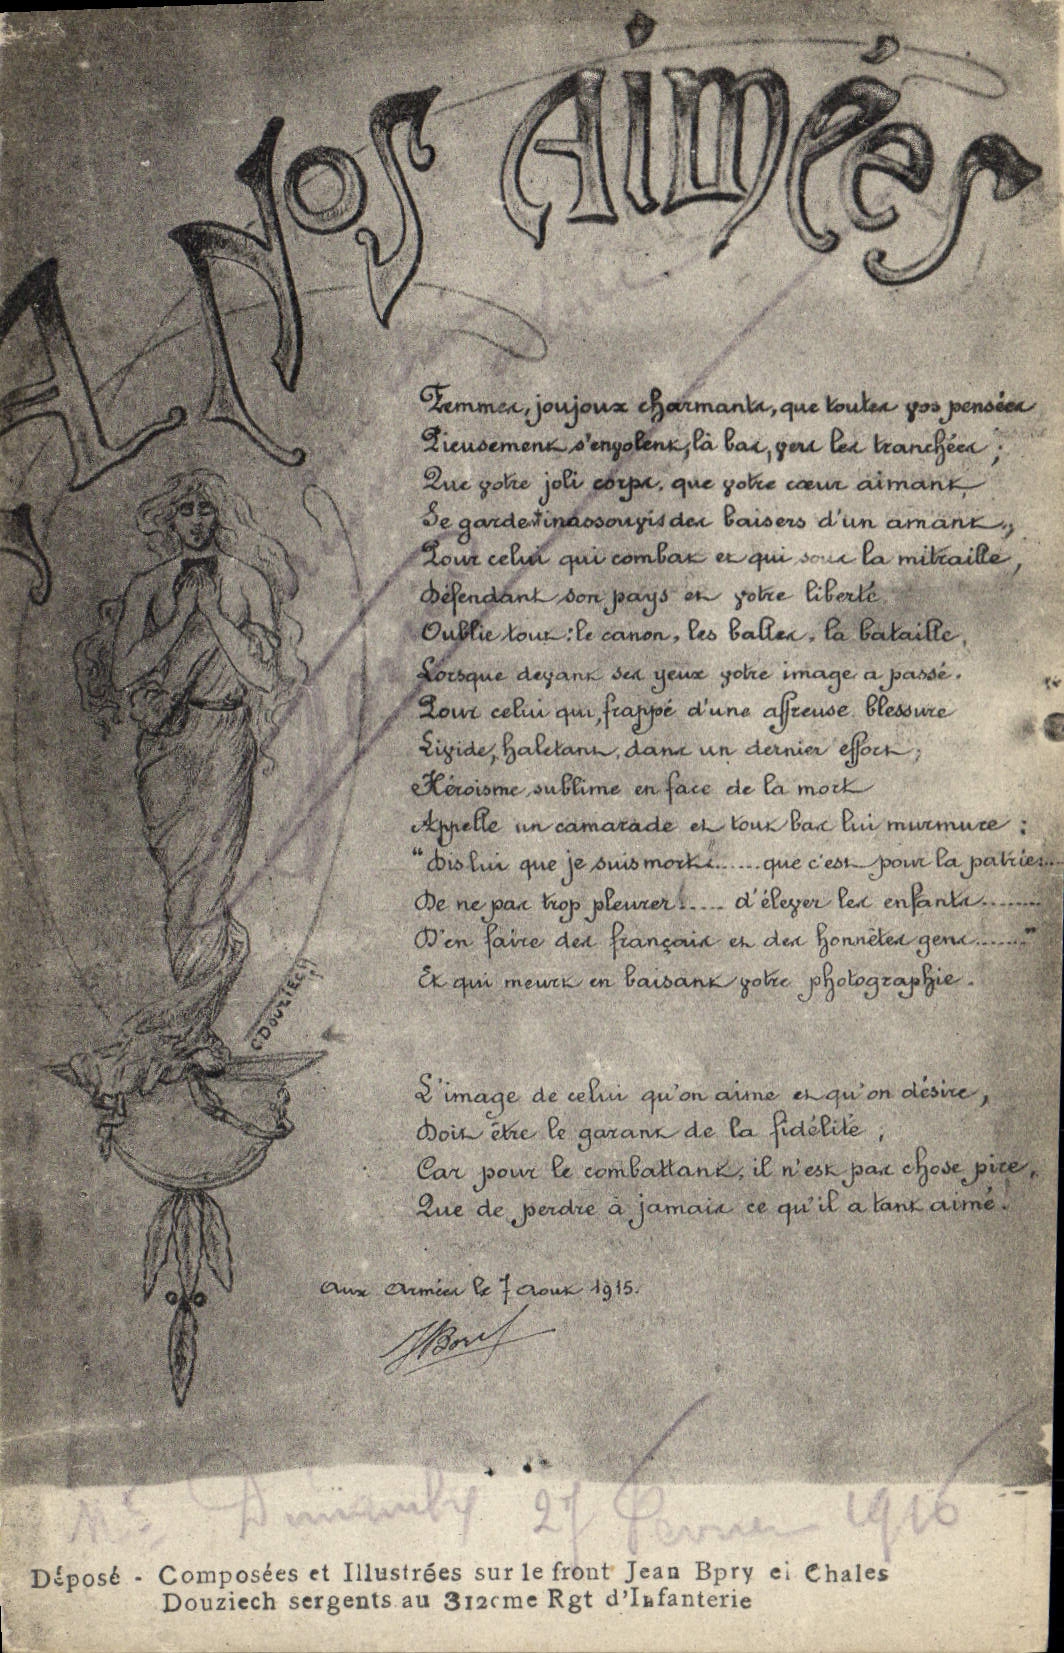 A Nos Aimées
Femmes, joujoux charmants, que toutes vos pensées
Pieusement s'envolent, là bas, vers les tranchées ;
Que votre joli corps, que votre cœur aimant,
Se garde inassouvis des baisers d'un amant,
Pour celui qui combat et qui sous la mitraille,
Défendant son pays et votre liberté
Oublie tout : le canon, les balles, la bataille,
Lorsque devant ses yeux votre image a passé.
Pour celui qui, frappé d'une affreuse blessure
Livide, haletant, dans un dernier effort,
Héroisme sublime en face de la mort
Appelle un camarade et tout bas lui murmure :
"Dis lui que je suis mort ...... que c'est pour la patrie....
De ne pas trop pleurer ..... d'élever les enfants........
D'en faire des français et des honnêtes gens......."
Et qui meurt en baisant votre photographie.
C DOUZIECH
L'image de celui qu'on aime et qu'on désire,
Doit être le garant de la fidélité ;
Car pour le combattant, il n'est pas chose pire,
Que de perdre à jamais ce qu'il a tant aimé.
Aux Armées le 7 Aout 1915.
JBory
27 Fevrier 1916
Déposé - Composées et Illustrées sur le front Jean Bpry ei Chales
Douziech sergents au 312cme Rgt d'Infanterie